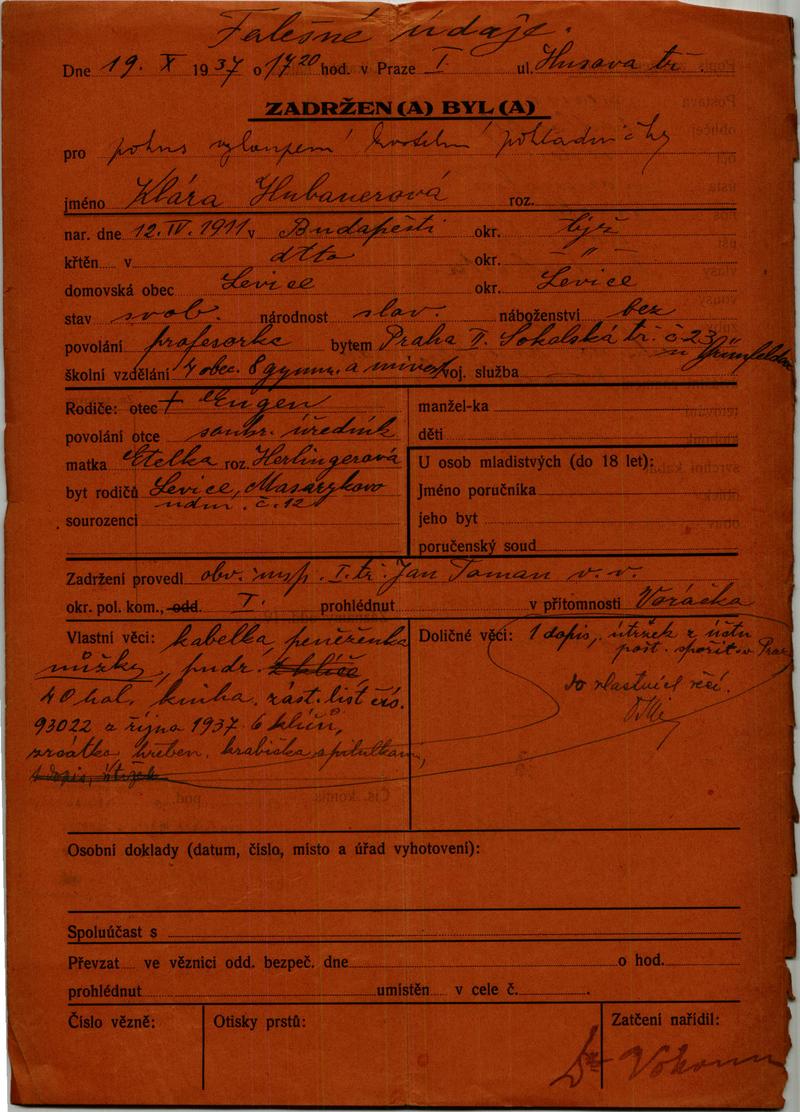 Falešné údaje.
Dne 19. X 1937 o 17 20 hod. v Praze I. ul. Husova tř.
ZADRŽEN(A) BYL(A)
pro pokus vyloupení kostelní pokladničky
jméno Klára Hubauerová roz.
nar. dne 12. IV. 1911 v Budapešti okr. týž
křtěn v dtto okr. – " –
domovská obec Levice okr. Levice
stav svob. národnost slov. náboženství bez
povolání profesorka bytem Praha II. Sokolská tř. č. 23
u Grünfelda
školní vzdělání 4 obec. 8 gymn. a univers voj. služba
Rodiče: otec + Eugen
povolání otce soukr. úředník
matka Etelka roz. Herlingerová
byt rodičů Levice, Masarykovo
nám. č. 12
sourozenci
manžel-ka
děti
U osob mladistvých (do 18 let):
Jméno poručníka
jeho byt
poručenský soud
Zadržení provedl obv. insp. I. tř. Jan Toman v. v.
okr. pol. kom., odd. I. prohlédnut v přítomnosti Voráčka
Vlastní věci: kabelka, peněženka
nůžky, pudr. 2 klíče
40 hal. kniha. zást. list čís.
93022 z října 1937. 6 klíčů,
zrcátko hřeben. krabička s pilulkami,
1 dopis, útržek
Doličné věci: 1 dopis, útržek z účtu
pošt. spořit. v Praze
do vlastních věcí.
Osobní doklady (datum, číslo, místo a úřad vyhotovení):
Spoluúčast s
Převzat ve věznici odd. bezpeč. dne o hod.
prohlédnut umístěn v cele č.
Číslo vězně:
Otisky prstů:
Zatčení nařídil:
Dr